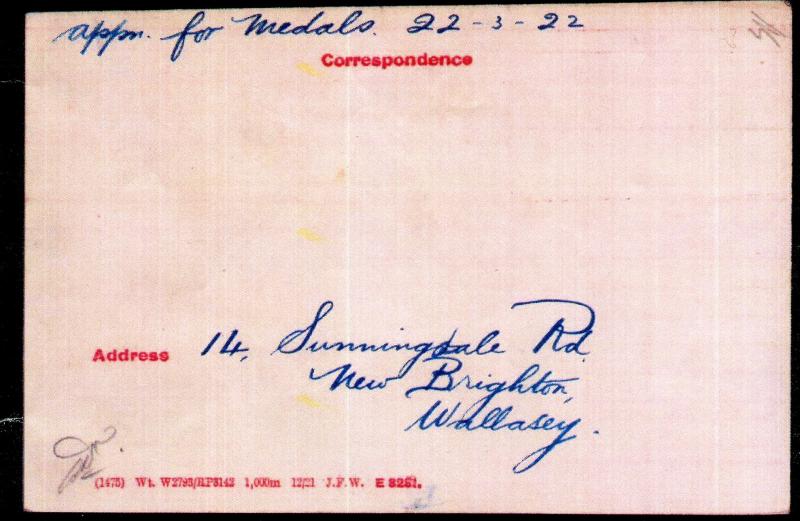 appn. for Medals. 22-3-22
Correspondence
Address 14, Sunningdale Rd.
New Brighton,
Wallasey.
(1475) Wt. W2793/RP3142 1,000m 12/21 J.F.W. E 3251.